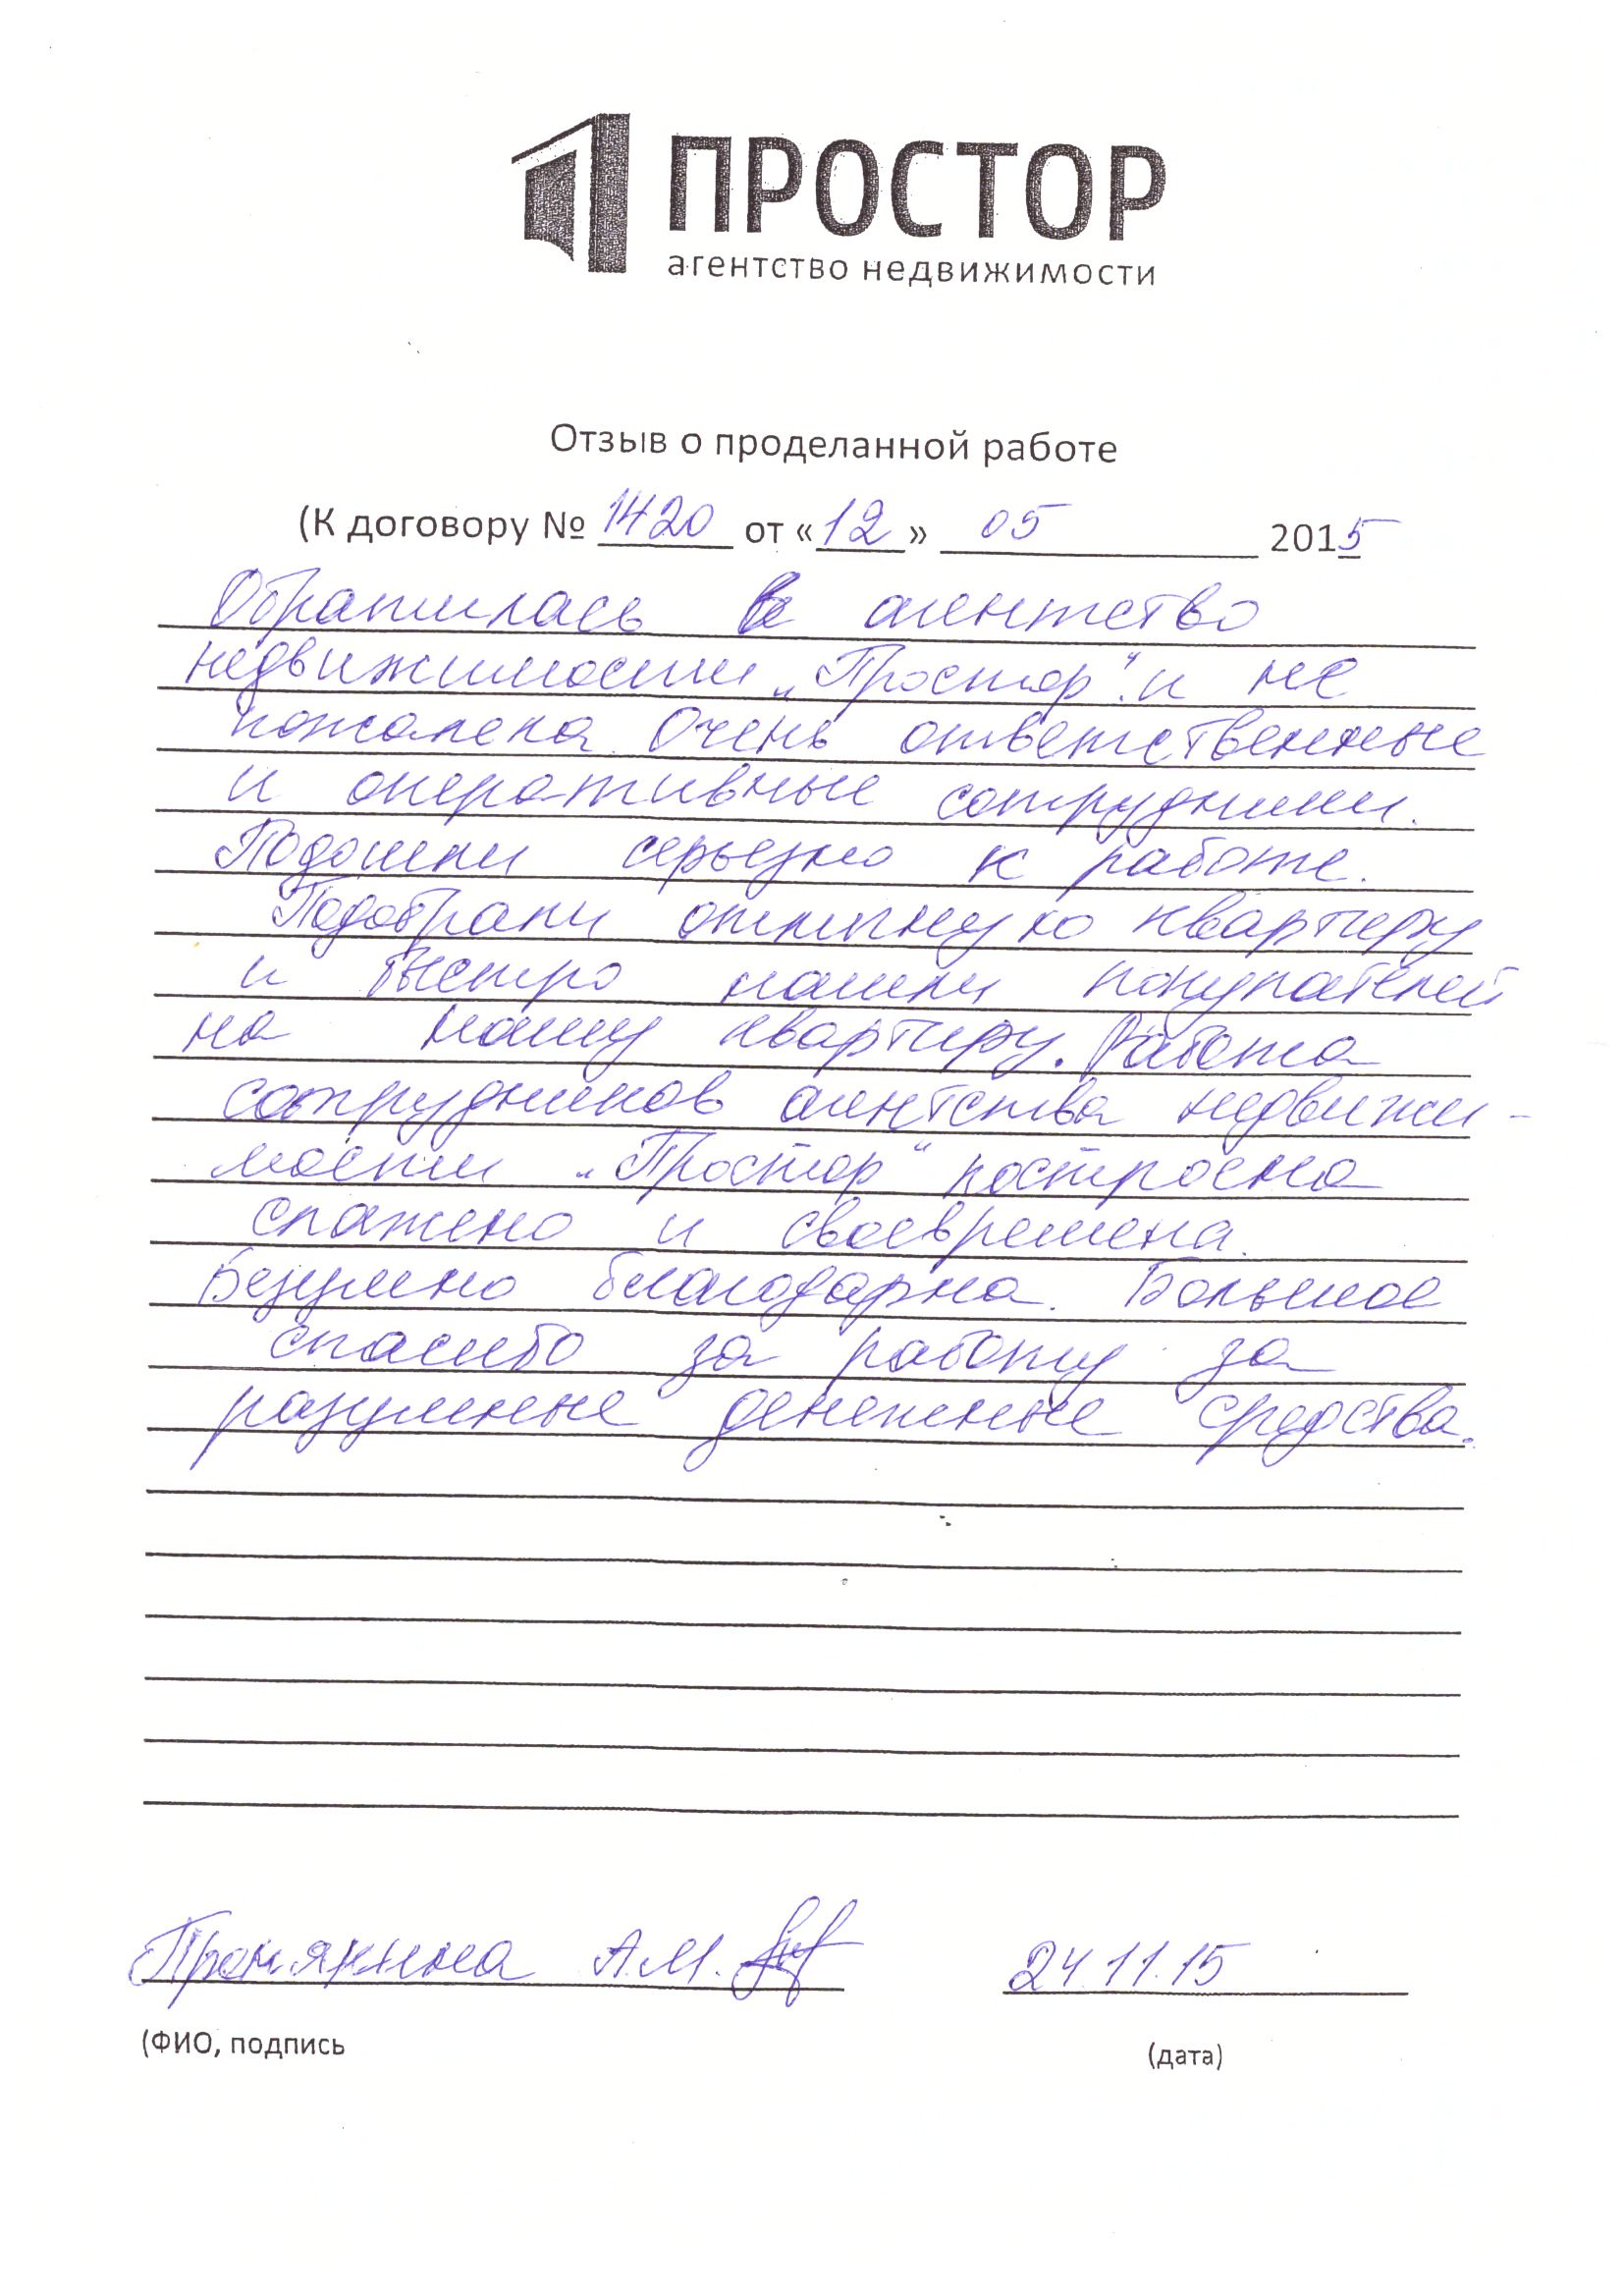 ПРОСТОР
агентство недвижимости
Отзыв о проделанной работе
(К договору № 1420 от «12» 05 2015
Обратилась в агентство
недвижимости „Простор". и не
пожалела. Очень ответственные
и оперативные сотрудники.
Подошли серьезно к работе.
Подобрали отличную квартиру
и быстро нашли покупателей
на нашу квартиру. Работа
сотрудников агентства недвижи-
мости „Простор" построена
слажено и своевремена.
Безумно благодарна. Большое
спасибо за работу за
разумные денежные средства.
А.М.
24.11.15
(ФИО, подпись
(дата)